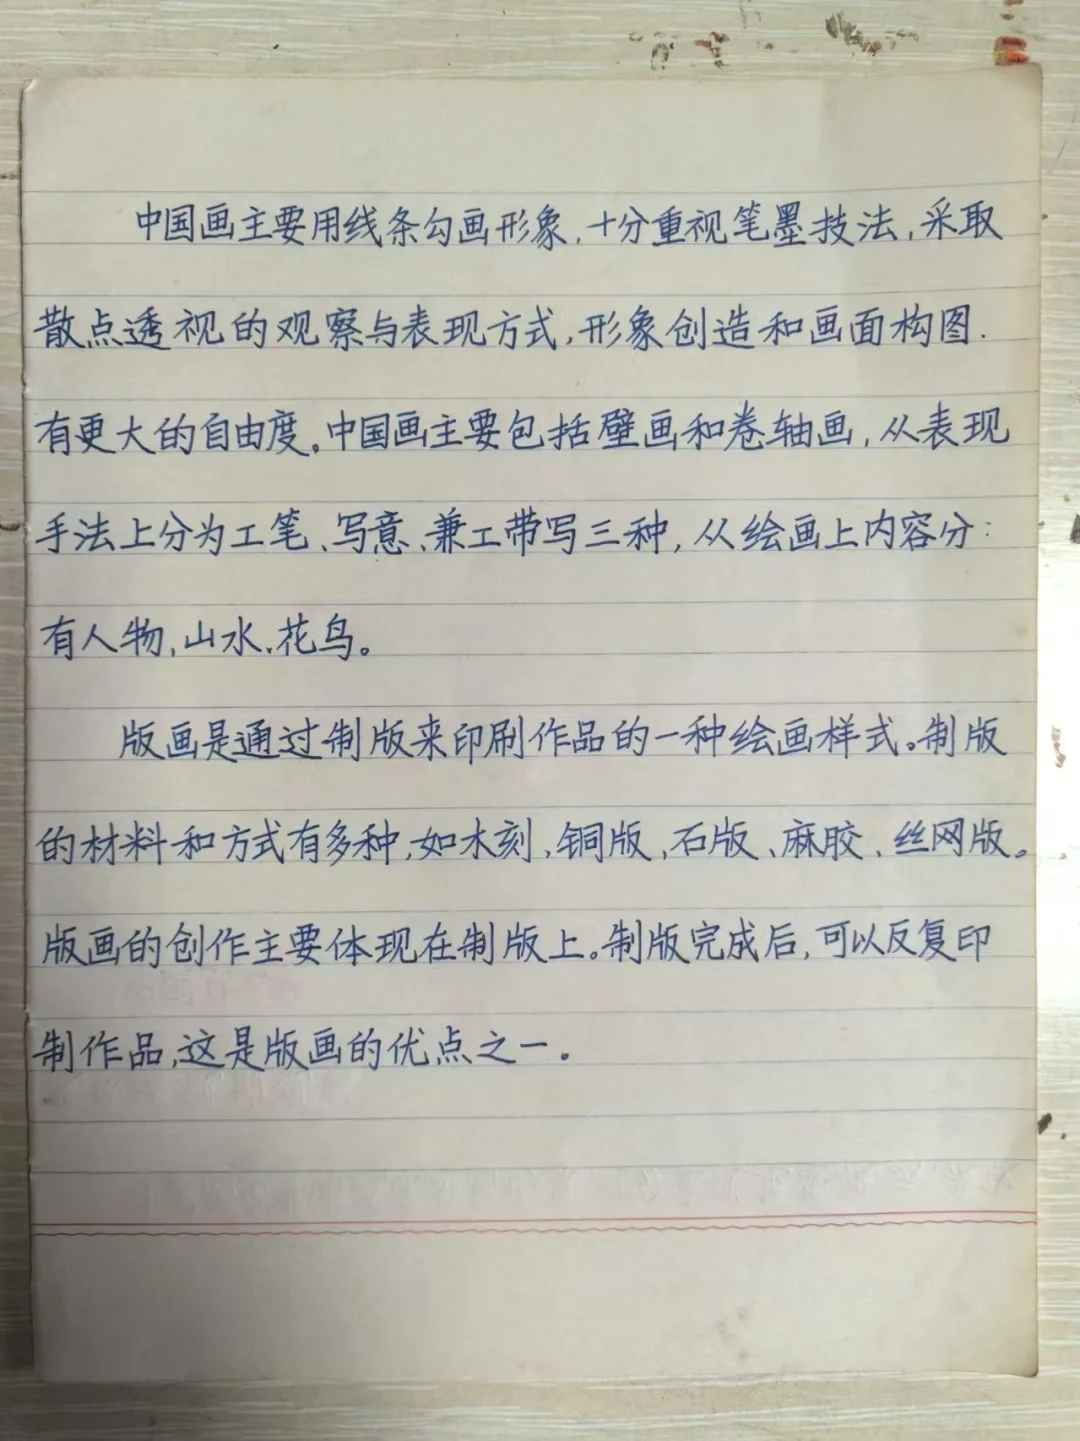 中国画主要用线条勾画形象,十分重视笔墨技法,采取
散点透视的观察与表现方式,形象创造和画面构图.
有更大的自由度。中国画主要包括壁画和卷轴画,从表现
手法上分为工笔、写意、兼工带写三种,从绘画上内容分:
有人物,山水、花鸟。
版画是通过制版来印刷作品的一种绘画样式。制版
的材料和方式有多种,如木刻、铜版、石版、麻胶、丝网版。
版画的创作主要体现在制版上。制版完成后,可以反复印
制作品,这是版画的优点之一。